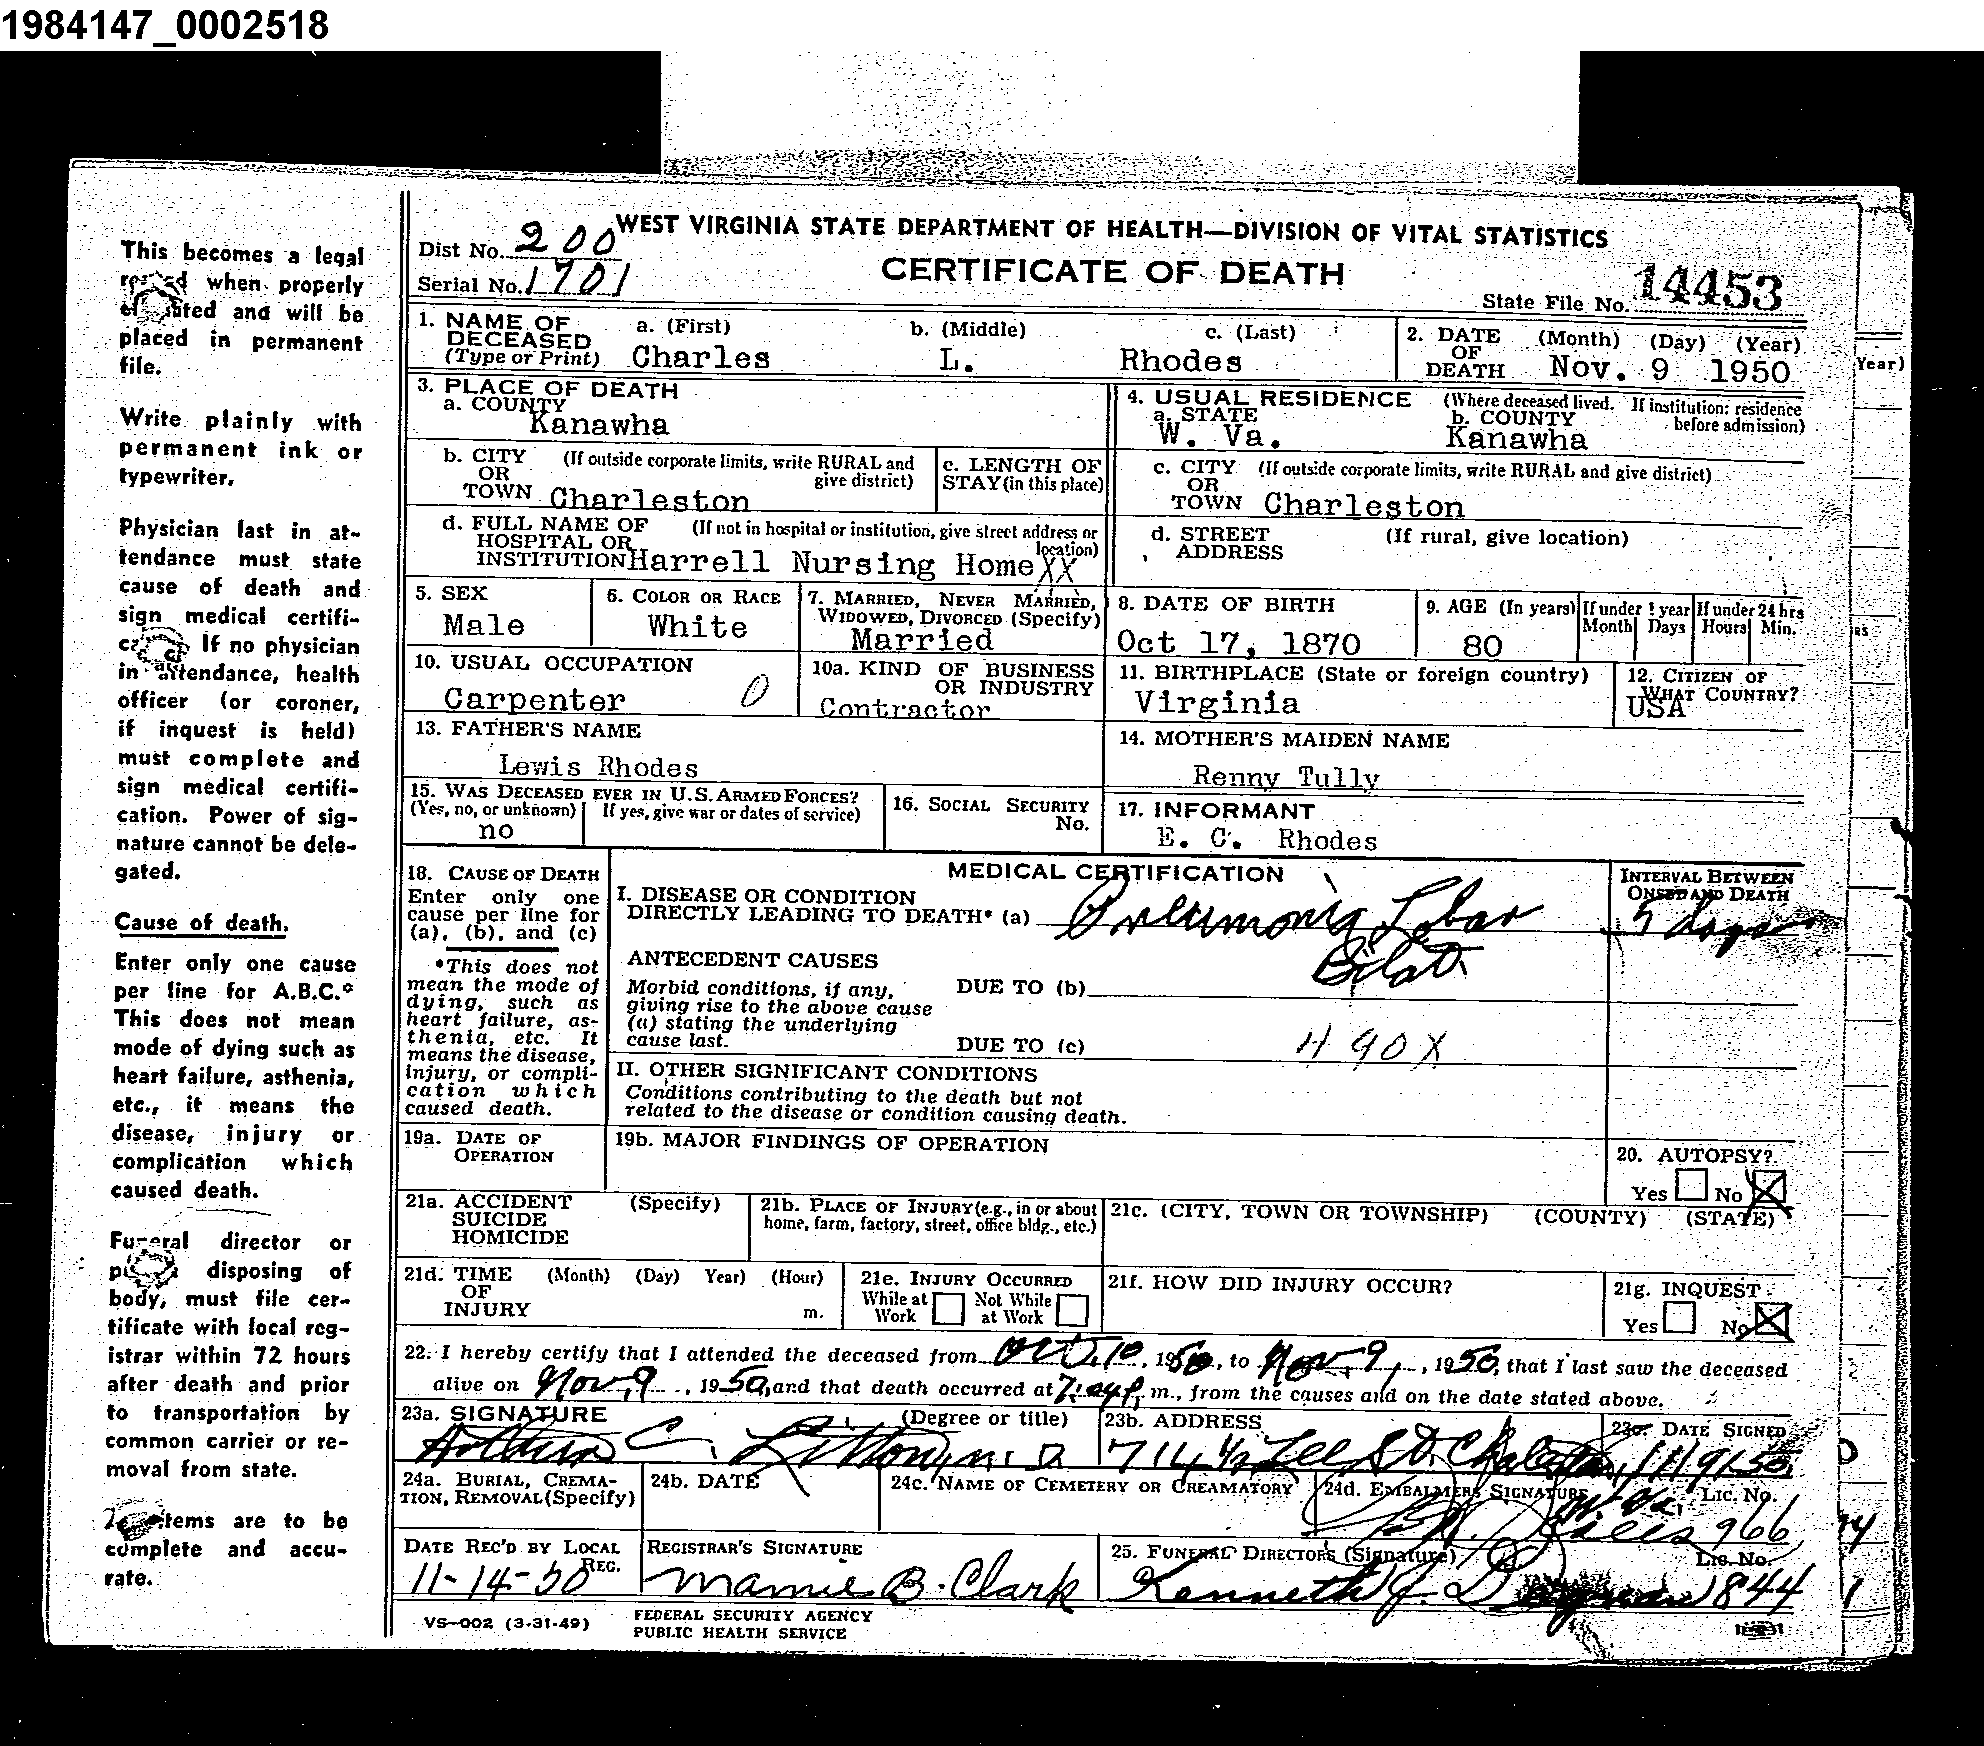 1984147_0002518
WEST VIRGINIA STATE DEPARTMENT OF HEALTH—DIVISION OF VITAL STATISTICS
Dist No. 200
CERTIFICATE OF DEATH
Serial No. 1701
State File No. 14453
1. NAME OF DECEASED (Type or Print) a. (First) Charles b. (Middle) L. c. (Last) Rhodes
2. DATE OF DEATH (Month) (Day) (Year) Nov. 9 1950
Year)
3. PLACE OF DEATH
a. COUNTY Kanawha
4. USUAL RESIDENCE (Where deceased lived. If institution: residence before admission)
a. STATE W. Va. b. COUNTY Kanawha
b. CITY OR TOWN (If outside corporate limits, write RURAL and give district) Charleston
c. LENGTH OF STAY (in this place)
c. CITY OR TOWN (If outside corporate limits, write RURAL and give district) Charleston
d. FULL NAME OF HOSPITAL OR INSTITUTION (If not in hospital or institution, give street address or location) Harrell Nursing Home XX
d. STREET ADDRESS (If rural, give location)
5. SEX Male
6. COLOR OR RACE White
7. MARRIED, NEVER MARRIED, WIDOWED, DIVORCED (Specify) Married
8. DATE OF BIRTH Oct 17, 1870
9. AGE (In years) 80
If under 1 year Month Days
If under 24 hrs Hours Min.
10. USUAL OCCUPATION Carpenter 0
10a. KIND OF BUSINESS OR INDUSTRY Contractor
11. BIRTHPLACE (State or foreign country) Virginia
12. CITIZEN OF WHAT COUNTRY? USA
13. FATHER'S NAME Lewis Rhodes
14. MOTHER'S MAIDEN NAME Renny Tully
15. WAS DECEASED EVER IN U.S. ARMED FORCES?
(Yes, no, or unknown) no
If yes, give war or dates of service)
16. SOCIAL SECURITY No.
17. INFORMANT E. C. Rhodes
18. CAUSE OF DEATH
Enter only one cause per line for (a), (b), and (c)
*This does not mean the mode of dying, such as heart failure, asthenia, etc. It means the disease, injury, or complication which caused death.
MEDICAL CERTIFICATION
INTERVAL BETWEEN ONSET AND DEATH
I. DISEASE OR CONDITION DIRECTLY LEADING TO DEATH* (a) Pneumonia Lobar Bilat. 5 days
ANTECEDENT CAUSES
Morbid conditions, if any, giving rise to the above cause (a) stating the underlying cause last.
DUE TO (b)
DUE TO (c) 490X
II. OTHER SIGNIFICANT CONDITIONS
Conditions contributing to the death but not related to the disease or condition causing death.
19a. DATE OF OPERATION
19b. MAJOR FINDINGS OF OPERATION
20. AUTOPSY? Yes No X
21a. ACCIDENT SUICIDE HOMICIDE (Specify)
21b. PLACE OF INJURY (e.g., in or about home, farm, factory, street, office bldg., etc.)
21c. (CITY, TOWN OR TOWNSHIP) (COUNTY) (STATE)
21d. TIME OF INJURY (Month) (Day) Year) (Hour) m.
21e. INJURY OCCURRED While at Work Not While at Work
21f. HOW DID INJURY OCCUR?
21g. INQUEST Yes No X
22. I hereby certify that I attended the deceased from Oct. 10, 1950, to Nov. 9, 1950, that I last saw the deceased
alive on Nov 9, 1950, and that death occurred at m., from the causes and on the date stated above.
23a. SIGNATURE (Degree or title) C. M.D.
23b. ADDRESS 714½ Lee St. Charleston, W. Va.
23c. DATE SIGNED 11/9/50
24a. BURIAL, CREMATION, REMOVAL (Specify)
24b. DATE
24c. NAME OF CEMETERY OR CREAMATORY
24d. EMBALMERS SIGNATURE LIC. NO. 966
DATE REC'D BY LOCAL REG. 11-14-50
REGISTRAR'S SIGNATURE Mamie B. Clark
25. FUNERAL DIRECTORS (Signature) Lic. No. Kenneth J. 1844
VS—002 (3-31-49)
FEDERAL SECURITY AGENCY
PUBLIC HEALTH SERVICE
This becomes a legal
record when properly
executed and will be
placed in permanent
file.
Write plainly with
permanent ink or
typewriter.
Physician last in at-
tendance must state
cause of death and
sign medical certifi-
If no physician
in attendance, health
officer (or coroner,
if inquest is held)
must complete and
sign medical certifi-
cation. Power of sig-
nature cannot be dele-
gated.
Cause of death.
Enter only one cause
per line for A.B.C.*
This does not mean
mode of dying such as
heart failure, asthenia,
etc., it means the
disease, injury or
complication which
caused death.
Funeral director or
disposing of
body, must file cer-
tificate with local reg-
istrar within 72 hours
after death and prior
to transportation by
common carrier or re-
moval from state.
items are to be
complete and accu-
rate.